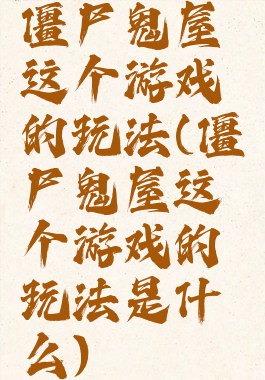 僵尸鬼屋
这个游戏
的玩法(僵
尸鬼屋这
个游戏的
玩法是什
么)